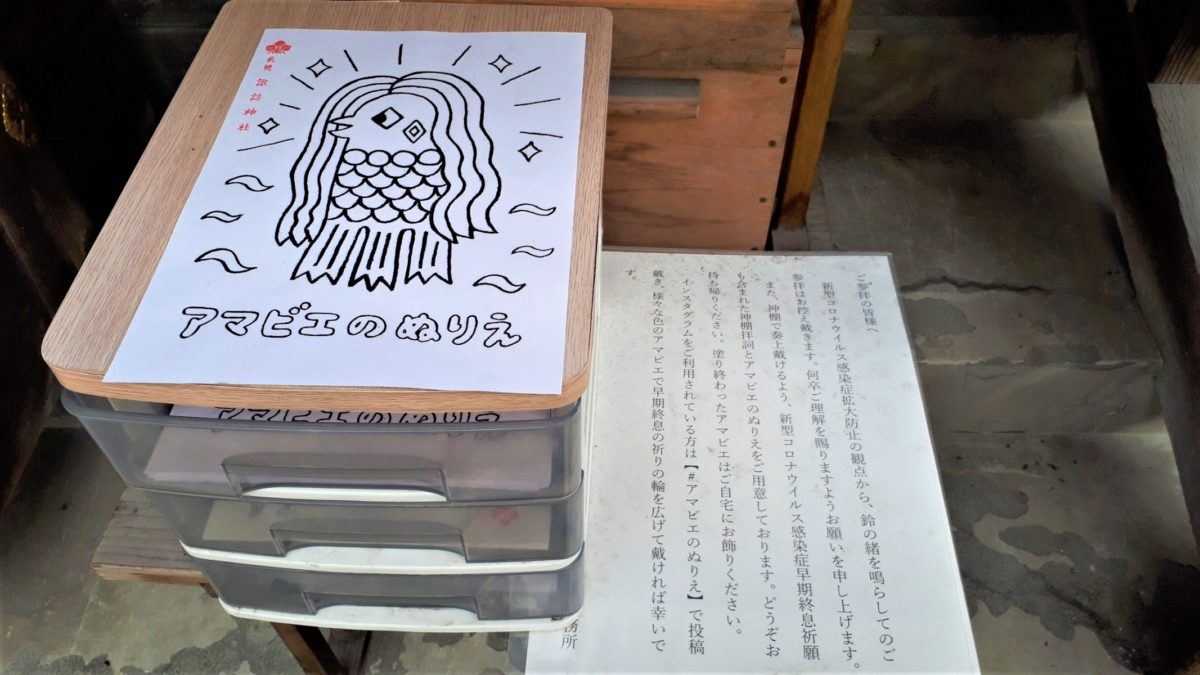 札幌 諏訪神社
アマビエのぬりえ
アマビエのぬりえ
ご参拝の皆様へ
新型コロナウイルス感染症拡大防止の観点から、鈴の緒を鳴らしてのご
参拝はお控え戴きます。何卒ご理解を賜りますようお願いを申し上げます。
また、神棚で奏上戴けるよう、新型コロナウイルス感染症早期終息祈願
も含まれた神棚拝詞とアマビエのぬりえをご用意しております。どうぞお
持ち帰りください。塗り終わったアマビエはご自宅にお飾りください。
インスタグラムをご利用されている方は【#アマビエのぬりえ】で投稿
戴き、様々な色のアマビエで早期終息の祈りの輪を広げて戴ければ幸いで
す。
務所